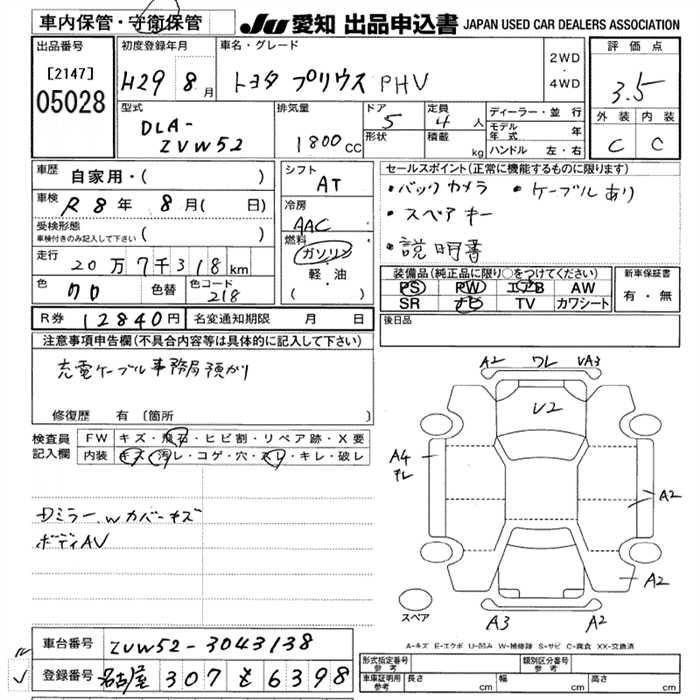 車内保管・守衛保管
JU 愛知 出品申込書 JAPAN USED CAR DEALERS ASSOCIATION
出品番号
[2147]
05028
初度登録年月
H29 8月
車名・グレード
トヨタ プリウス PHV
2WD
・
4WD
評価点
3.5
外装 内装
C C
型式
DLA-
ZVW52
排気量
1800cc
ドア
5
形状
定員
4人
積載
kg
ディーラー・並行
モデル年式 年
ハンドル 左・右
車歴
自家用・( )
車検
R8年 8月( 日)
受検形態
車検付きのみ記入して下さい ( )
走行
20万7千318km
色
クロ
色替
色コード
218
シフト
AT
冷房
AAC
燃料
ガソリン
軽・油
( )
セールスポイント(正常に機能するものに限ります)
・バックカメラ ・ケーブルあり
・スペアキー
・説明書
装備品(純正品に限り○をつけてください)
PS PW エアB AW
SR ナビ TV カワシート
新車保証書
有・無
R券 12840円 名変通知期限 月 日
後日品
注意事項申告欄(不具合内容等は具体的に記入して下さい)
充電ケーブル事務局預かり
修復歴 有 〔箇所 〕
検査員記入欄
FW キズ・飛石・ヒビ割・リペア跡・X要
内装 キズ・汚レ・コゲ・穴・スレ・キレ・破レ
Dミラー、wカバーキズ
ボディAV
A2 ワレ VA3
V2
A4
ワレ
A2
A2
A3 A2
スペア
A-キズ E-エクボ U-凹み W-補修跡 S-サビ C-腐食 XX-交換済
車台番号 ZVW52-3043138
登録番号 名古屋 307 も 6398
形式指定番号
参考
類別区分番号
参考
車庫証明用
参考
長さ cm 幅 cm 高さ cm